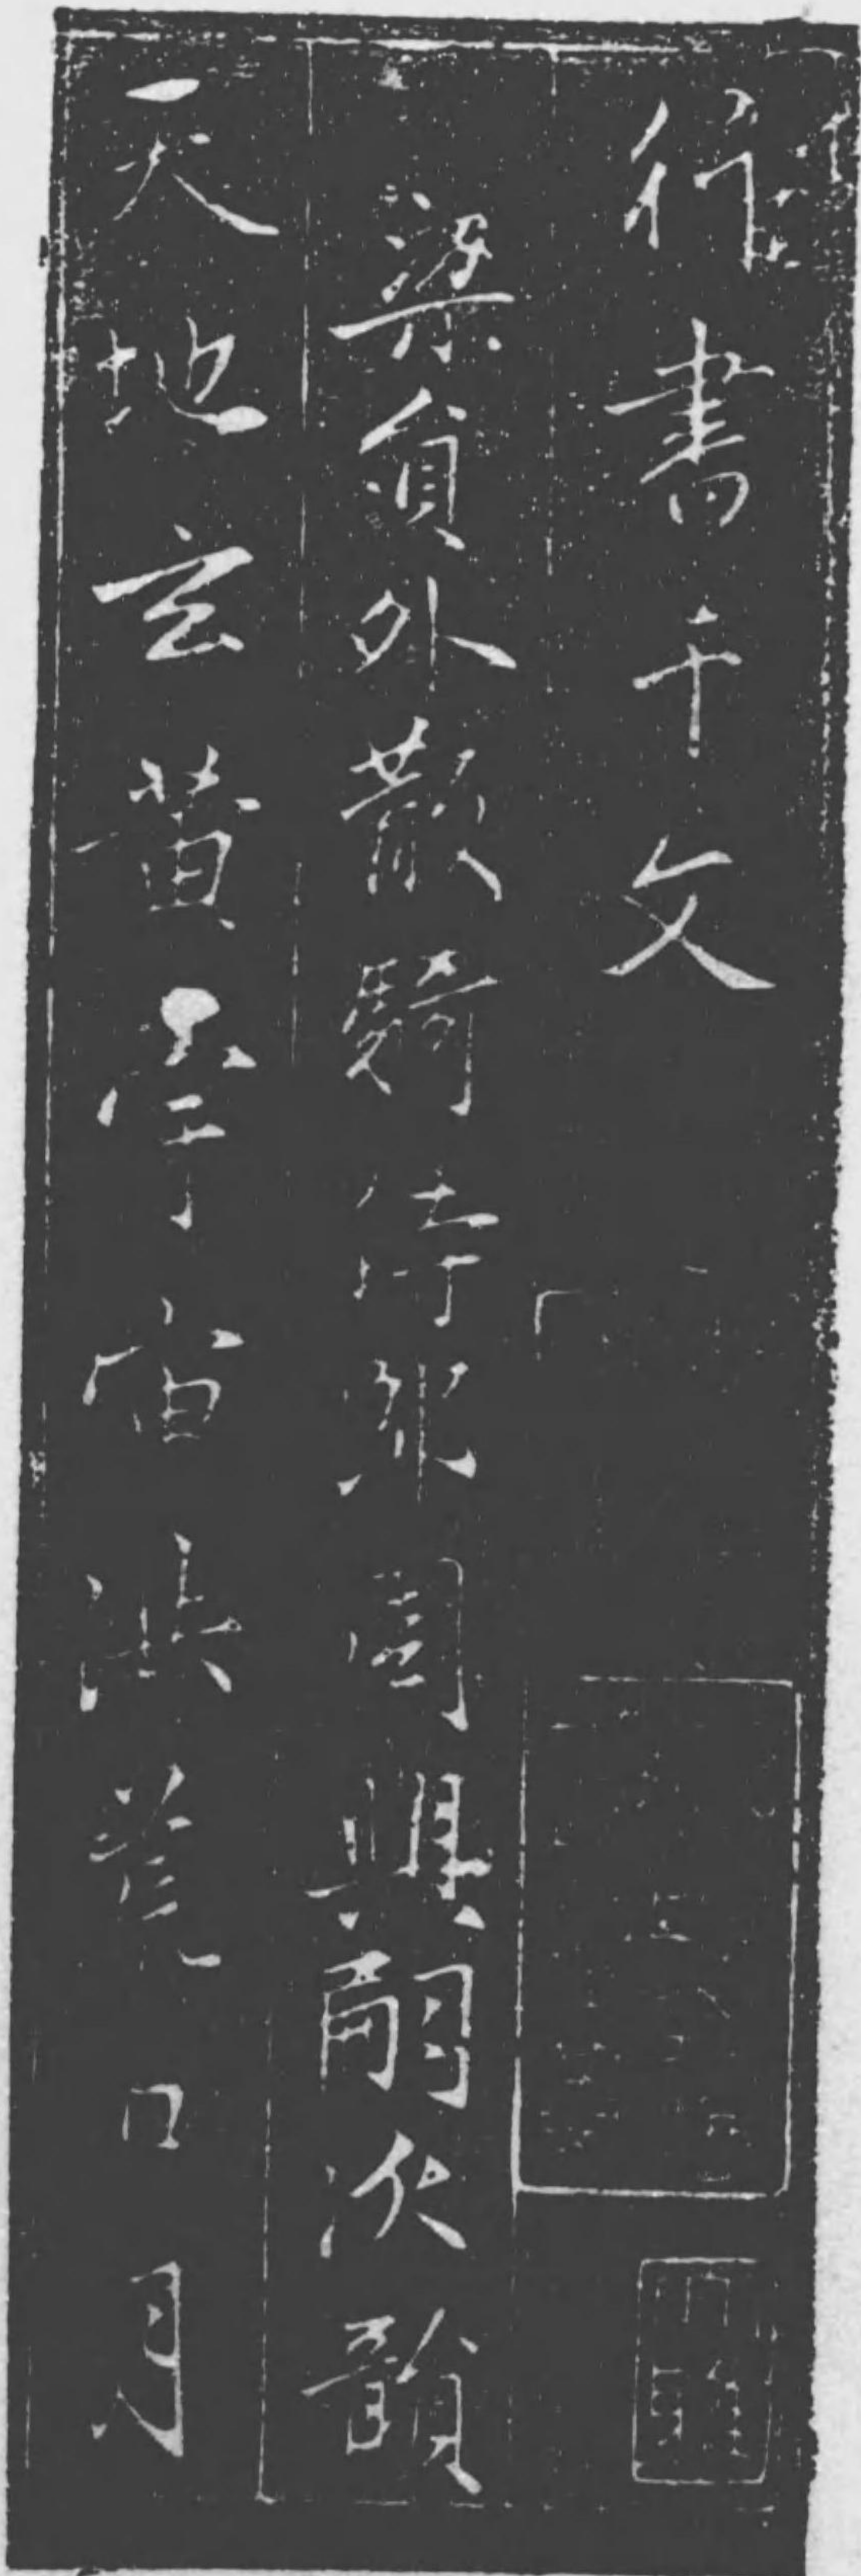 行書千文
梁員外散騎侍郎周興嗣次韻
天地玄黄宇宙洪荒日月